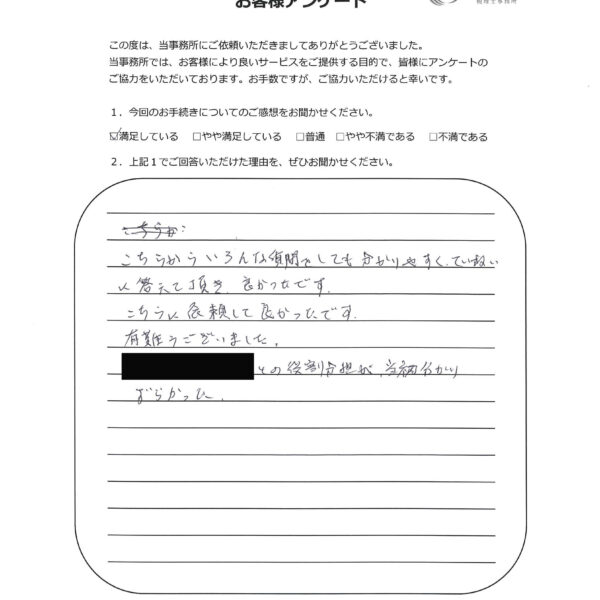 お客様アンケート
税理士事務所
この度は、当事務所にご依頼いただきましてありがとうございました。
当事務所では、お客様により良いサービスをご提供する目的で、皆様にアンケートの
ご協力をいただいております。お手数ですが、ご協力いただけると幸いです。
1．今回のお手続きについてのご感想をお聞かせください。
☑満足している □やや満足している □普通 □やや不満である □不満である
2．上記1でご回答いただけた理由を、ぜひお聞かせください。
こちらか
こちらからいろんな質問をしても分かりやすく、ていねい
に答えて頂き、良かったです。
こちらに依頼して良かったです。
有難うございました。
との役割分担が、当初分かり
づらかった。